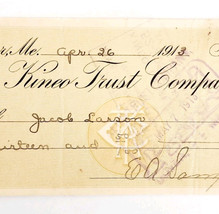 r, Me. Apr. 26 1913
Kineo Trust Compa
Jacob Larson
irteen and 50
E A Sam